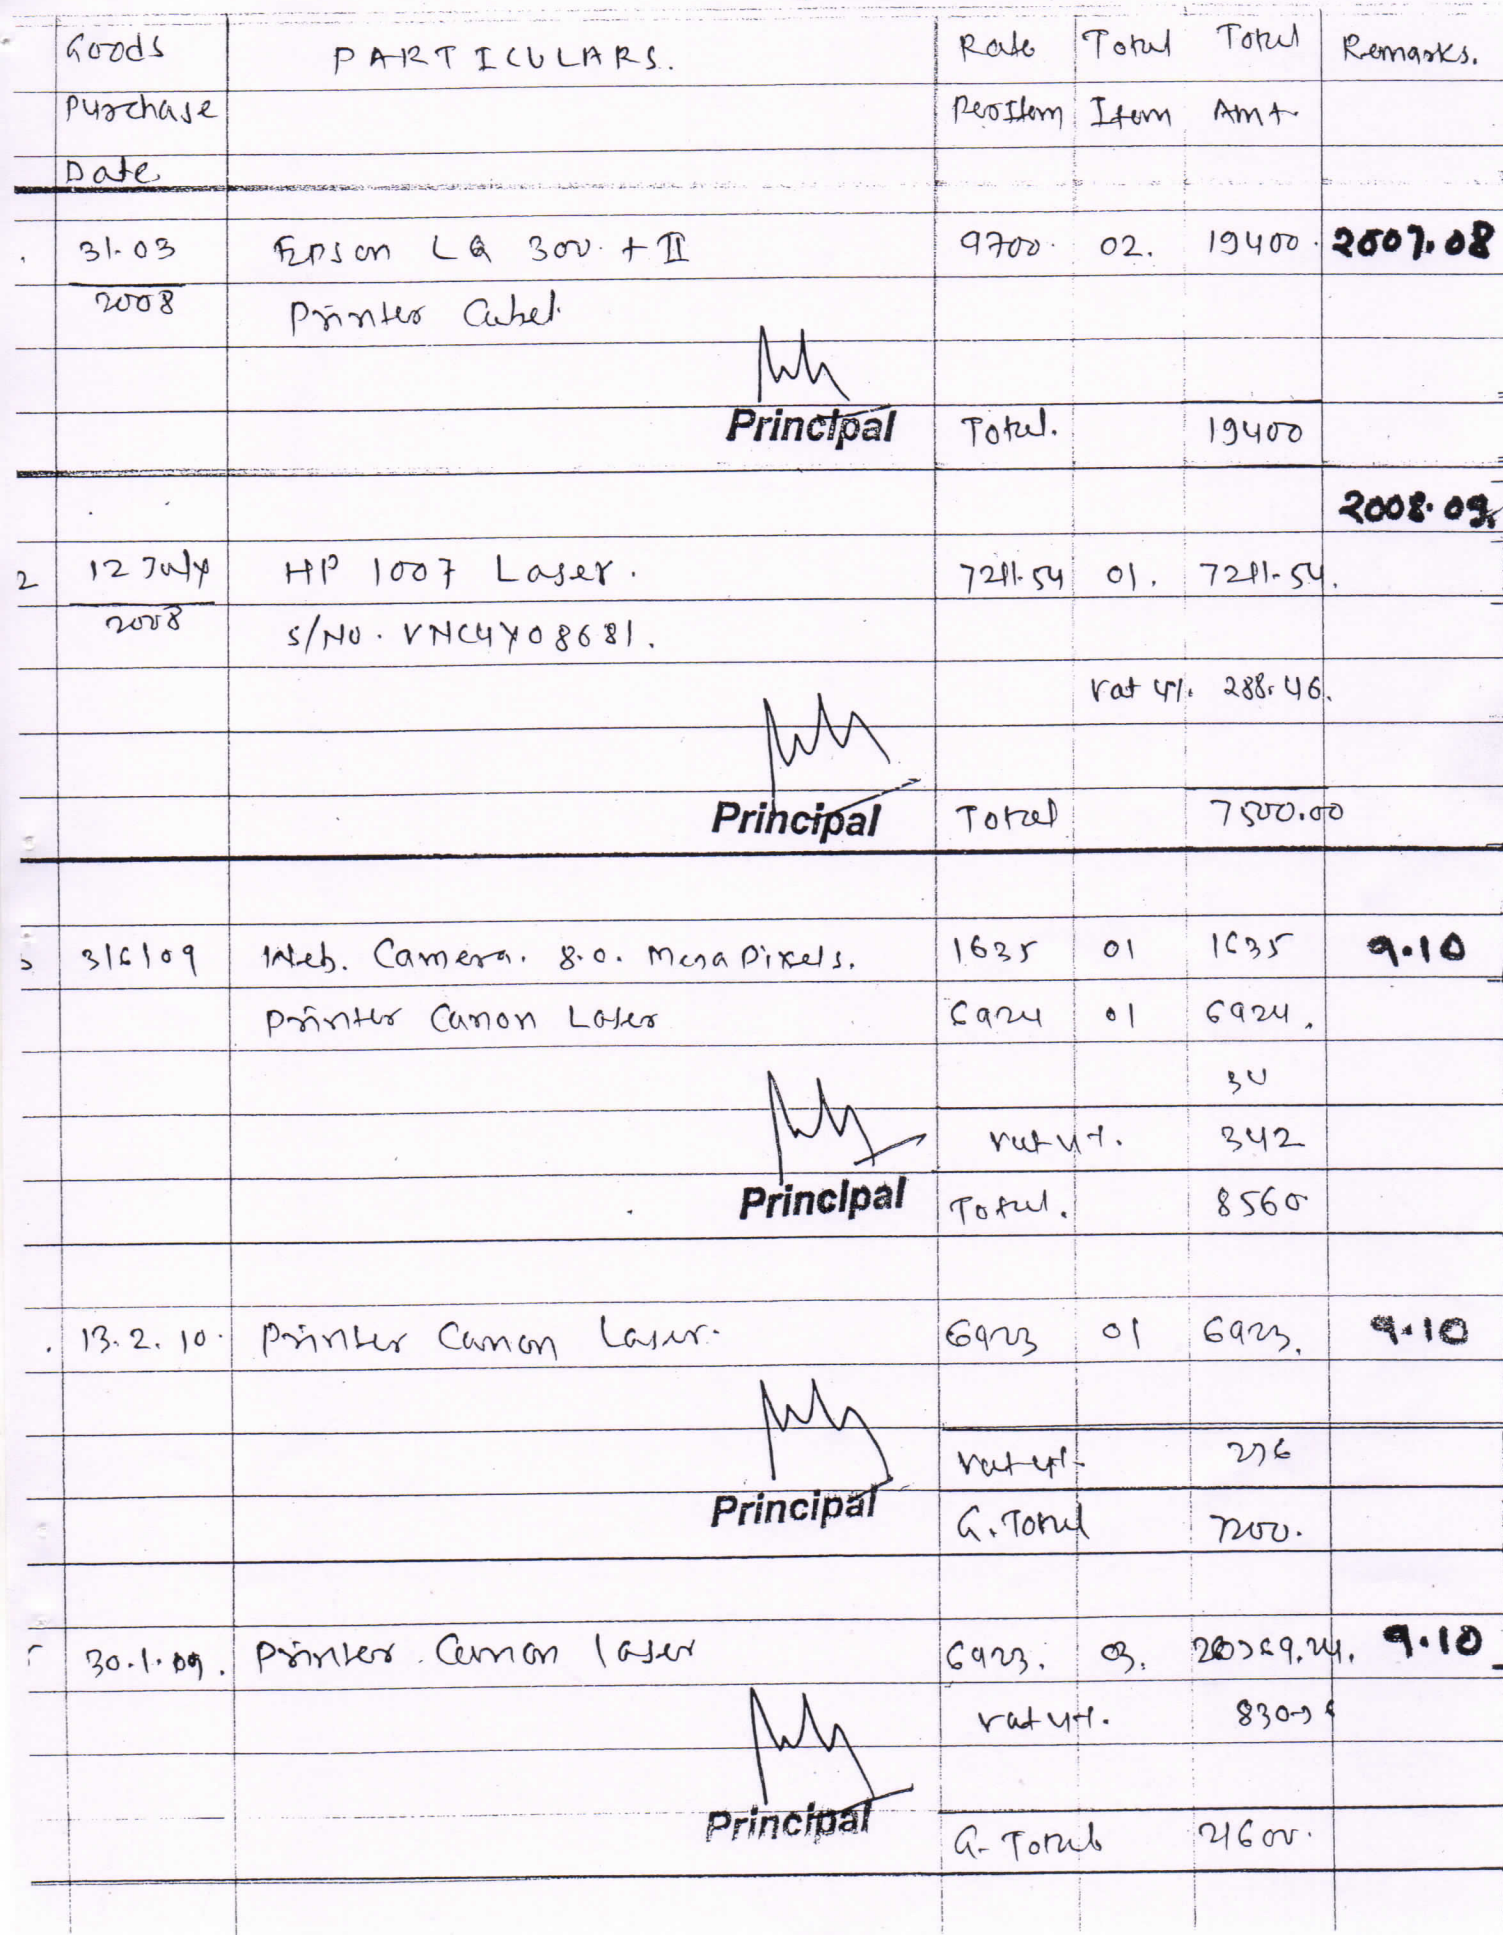 Goods PARTICULARS. Rate Total Total Remarks.
Purchase Per Item Item Amt.
Date
31-03 Epson LQ 300. + II 9700. 02. 19400. 2007.08
2008 Printer Cabel.
Principal Total. 19400
2008.09.
2 12 July HP 1007 Laser. 7211-54 01. 7211-54.
2008 S/No. VNC4Y08681.
vat 4%. 288.46.
Principal Total 7500.00
3/6/09 Web. Camera. 8.0. Mega Pixels. 1635 01 1635 9.10
Printer Canon Laser 6924 01 6924.
vat 4%. 342
Principal Total. 8560
. 13.2.10. Printer Canon Laser. 6923 01 6923. 9.10
vat 4%. 276
Principal G. Total 7200.
30.1.09. Printer. Canon laser 6923. 03. 9.10
vat 4%.
Principal G-Total 21600.